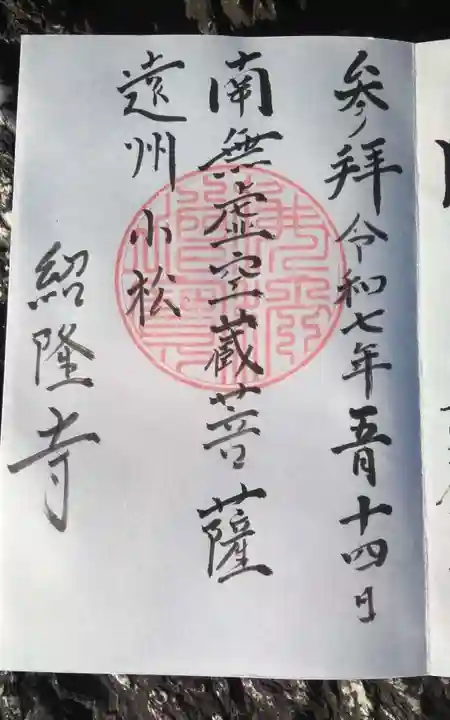 参拝 令和七年五月十四日
南無虚空蔵菩薩
遠州小松
紹隆寺